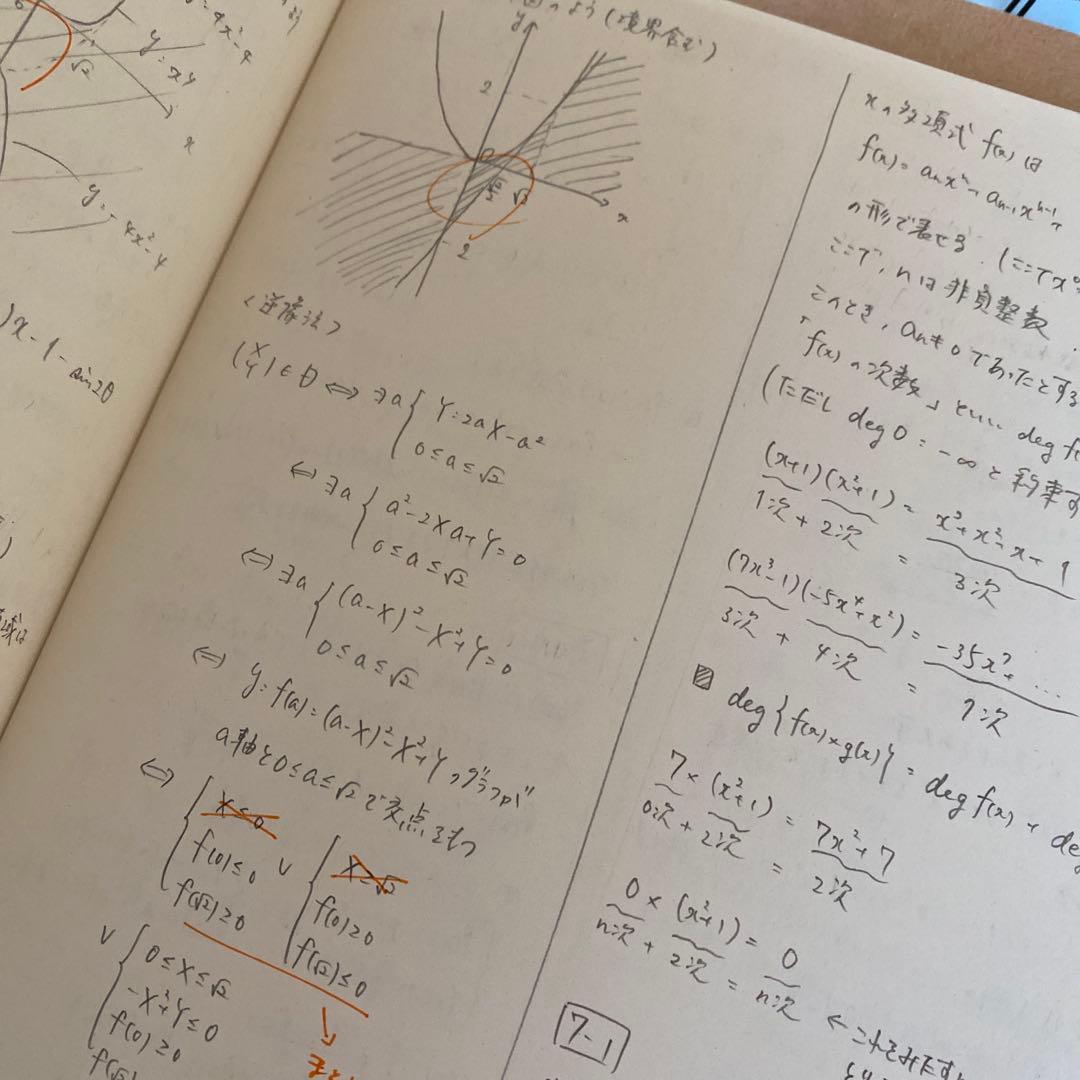 y=4x²-4
y=x4
√2
x
y=-4x²-4
)x-1-sin2θ
のよう(境界含む)
y
2
0
√2/2
√2
x
-2
<逆像法>
(X Y)∈θ⇔∃a{Y=2aX-a²
0≤a≤√2
⇔∃a{a²-2Xa+Y=0
0≤a≤√2
⇔∃a{(a-X)²-X²+Y=0
0≤a≤√2
⇔ y=f(a)=(a-X)²-X²+Yのグラフが
a軸と0≤a≤√2で交点をもつ
⇔{X≤0
f(0)≤0
f(√2)≥0
∨{X≥√2
f(0)≥0
f(√2)≤0
∨{0≤X≤√2
-X²+Y≤0
f(0)≥0
f(√2)
xの多項式f(x)は
f(x)=aₙxⁿ+aₙ₋₁xⁿ⁻¹+
の形で表せる.(ここでx⁰
ここで,nは非負整数.
このとき,aₙ≠0であったとする
「f(x)の次数」といい deg f(
(ただし deg0=-∞と約束す
(x+1)(x²+1)=x³+x²+x+1
1次+2次=3次
(7x³-1)(-5x⁴+x²)=-35x⁷+…
3次+4次=7次
deg{f(x)×g(x)}=deg f(x)+de
7×(x²+1)=7x²+7
0次+2次=2次
0×(x²+1)=0
n次+2次=n次 ←これをみたす
7-1